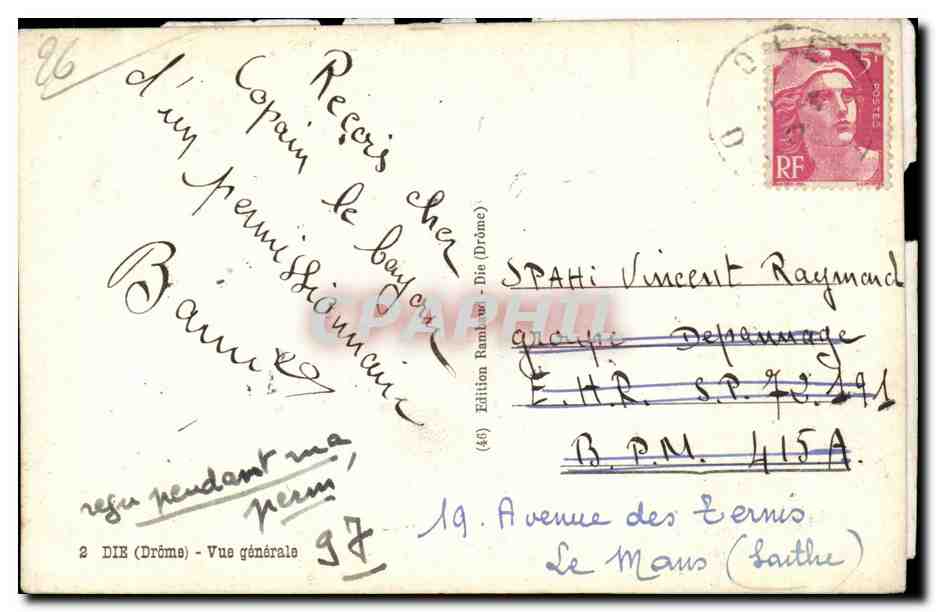 96
Reçois cher
Copain le bonjour
d'un permissionnaire
reçu pendant ma
perm
97
2 DIE (Drôme) - Vue générale
(46) Edition Rambaud - Die (Drôme)
CPAPHIL
5F
POSTES
RF
SPAHI Vincent Raymond
groupe Depannage
E.H.R. S.P. 72.191
B.P.M. 415A.
19. Avenue des Ternes
Le Mans (Sarthe)